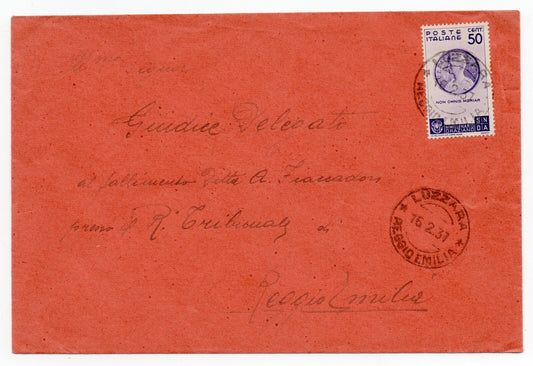 POSTE ITALIANE
CENT. 50
NON OMNIS MORIAR
BIMILLENARIO ORAZIANO
LUZZARA
Giudice Delegato
al fallimento Ditta A.
presso il R. Tribunale di
LUZZARA
16.2.37
REGGIO EMILIA
Reggio Emilia